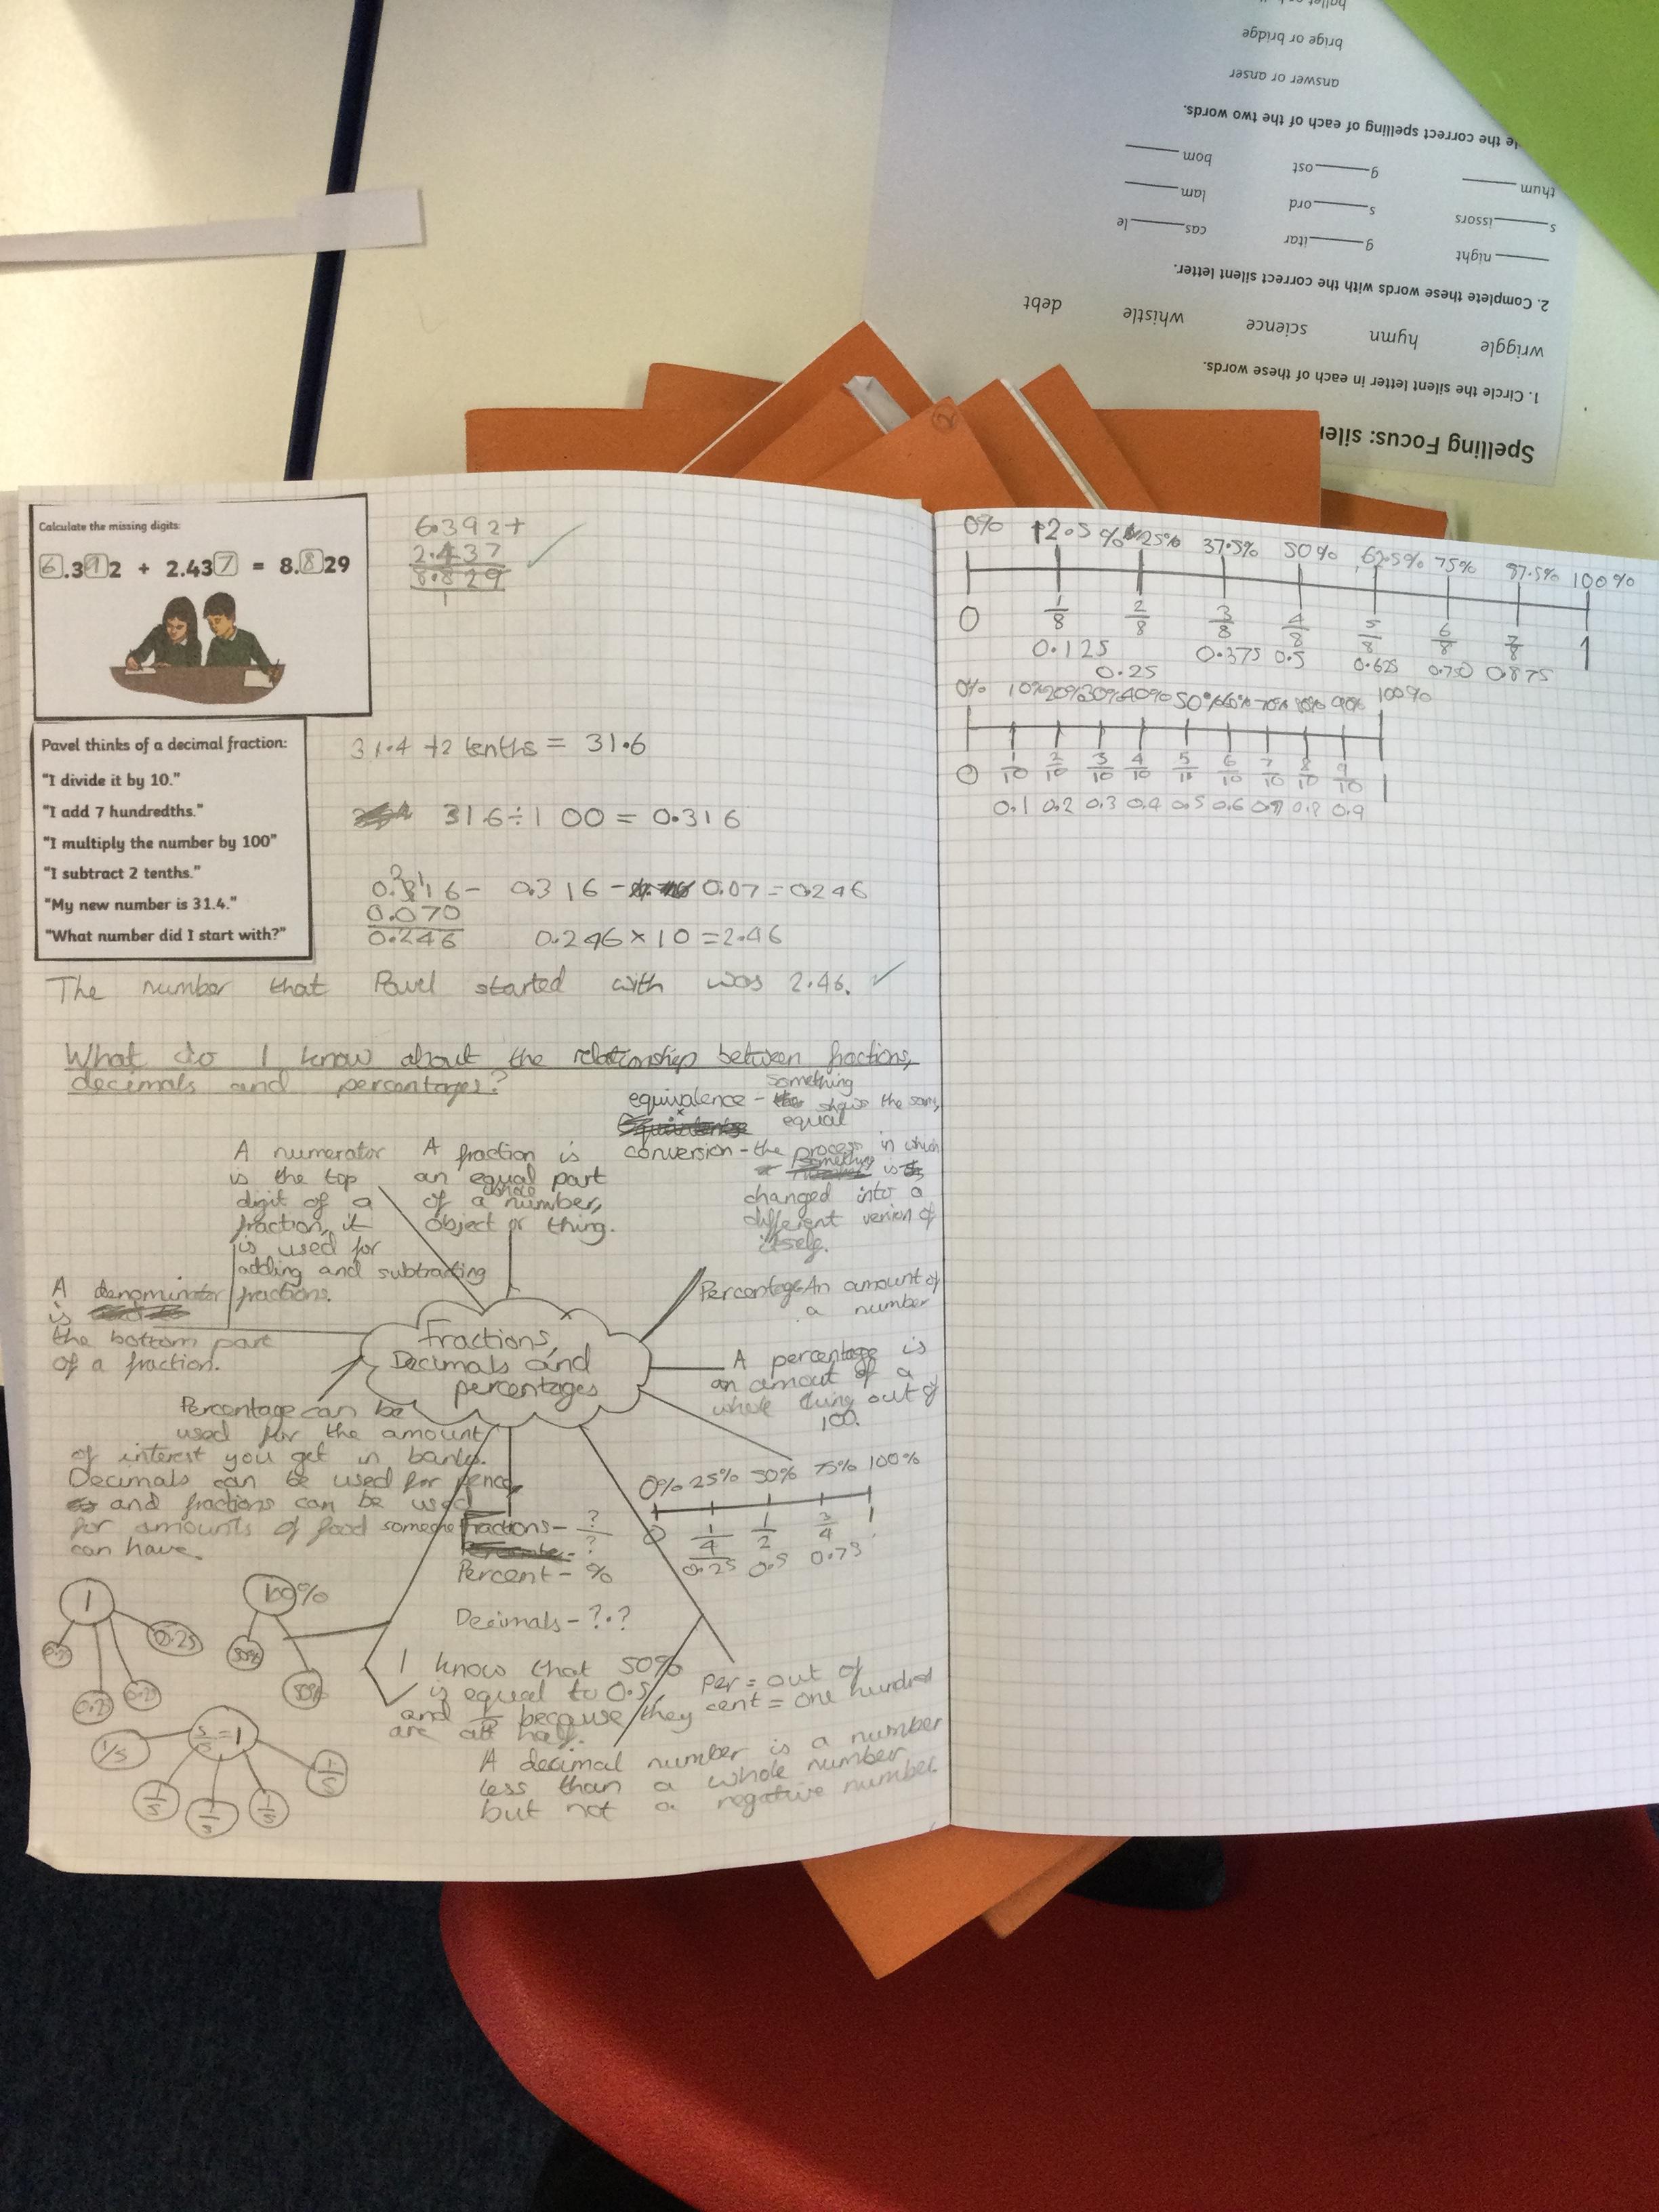 Calculate the missing digits:
6.392 + 2.437 = 8.829
6.392+
2.437
8.829
1
Pavel thinks of a decimal fraction:
"I divide it by 10."
"I add 7 hundredths."
"I multiply the number by 100"
"I subtract 2 tenths."
"My new number is 31.4."
"What number did I start with?"
31.4 +2 tenths = 31.6
31.6÷100 = 0.316
0.316-
0.070
0.246
0.316 - 0.07 = 0.246
0.246 × 10 = 2.46
The number that Pavel started with was 2.46.
What do I know about the relationship between fractions,
decimals and percentages?
equivalence - something
shows the same,
equal
conversion - the process in which
something is
changed into a
different verion of
itself.
A numerator
is the top
digit of a
fraction, it
is used for
adding and subtracting
fractions.
A fraction is
an equal part
of a whole number,
object or thing.
A denominator
is
the bottom part
of a fraction.
Fractions,
Decimals and
percentages
Percentage-An amount of
a number
A percentage is
an amout of a
whole thing out of
100.
Percentage can be
used for the amount
of interest you get in banks.
Decimals can be used for pence
and fractions can be used
for amounts of food someone
can have.
fractions- ?/?
Percent - %
Decimals - ?.?
0% 25% 50% 75% 100%
0 1/4 1/2 3/4 1
0.25 0.5 0.75
1
0.25
0.25
0.25
0.25
100%
50%
50%
5/5 = 1
1/5
1/5
1/5
1/5
1/5
I know that 50%
is equal to 0.5
and 1/2 because they
are all half.
per = out of
cent = one hundred
A decimal number is a number
less than a whole number
but not a negative number.
0% 12.5% 25% 37.5% 50% 62.5% 75% 87.5% 100%
0 1/8 2/8 3/8 4/8 5/8 6/8 7/8 1
0.125 0.25 0.375 0.5 0.625 0.750 0.875
0% 10% 20% 30% 40% 50% 60% 70% 80% 90% 100%
0 1/10 2/10 3/10 4/10 5/10 6/10 7/10 8/10 9/10 1
0.1 0.2 0.3 0.4 0.5 0.6 0.7 0.8 0.9
Spelling Focus: silen
1. Circle the silent letter in each of these words.
wriggle hymn science whistle debt
2. Complete these words with the correct silent letter.
____night g____itar cas____le
s____issors s____ord lam____
thum____ g____ost bom____
le the correct spelling of each of the two words.
answer or anser
brige or bridge